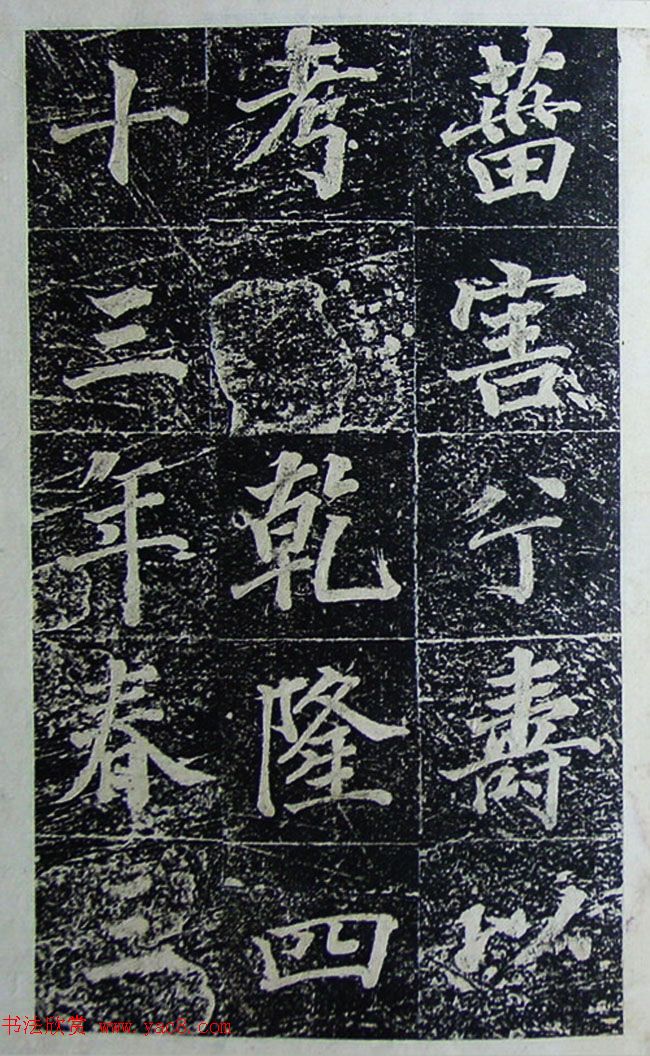 菑害兮壽以
考乾隆四
十三年春三
书法欣赏 www.yac8.com